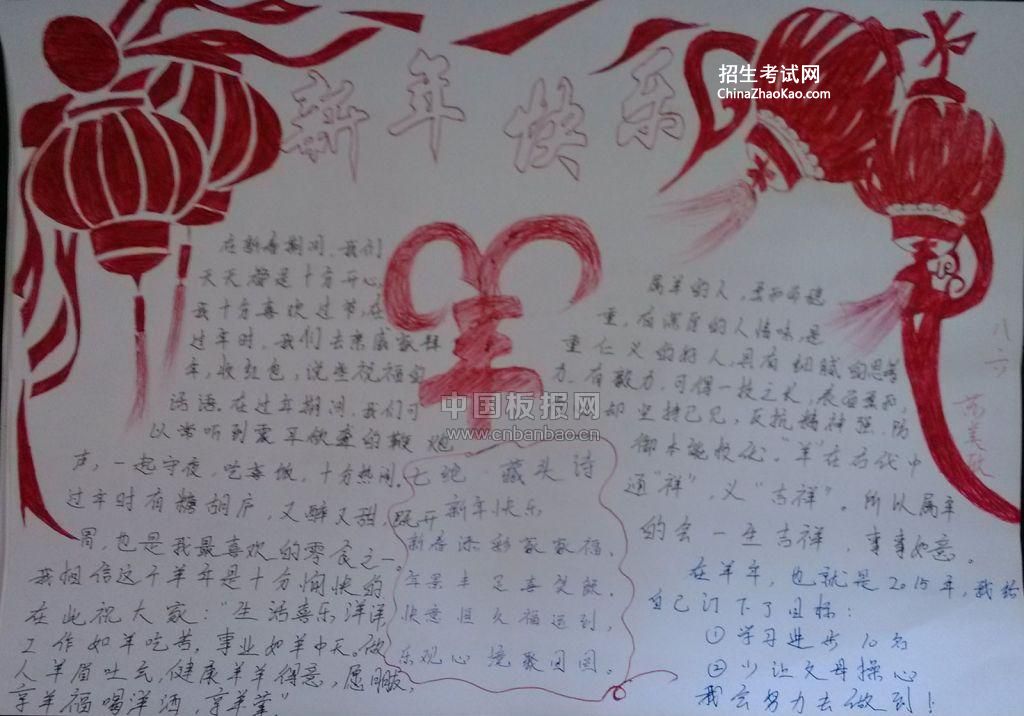 招生考试网
ChinaZhaoKao.com
新年快乐
羊
在新春期间,我们
天天都是十分开心,
我十分喜欢过节,在
过年时,我们去亲戚家拜
年,收红包,说些祝福的
话语。在过年期间,我们可
以常听到震耳欲聋的鞭炮
声,一起守夜,吃喜饭,十分热闹。
过年时有糖胡庐,又酥又甜,既开
胃,也是我最喜欢的零食之一。
我相信这个羊年是十分愉快的,
在此祝大家:“生活喜乐洋洋
工作如羊吃苦,事业如羊中天,做
人羊眉吐气,健康羊羊得意,愿朋友,
享羊福喝洋酒,享羊羊”
中国板报网
www.cnbanbao.cn
七绝 藏头诗
新年快乐
新春添彩家家福,
年景丰足喜笑颜,
快意恒久福运到,
乐观心境聚团圆。
属羊的人,柔和而稳
重,有深厚的人情味,是
重仁义的好人,具有细腻的思考
力,有毅力,可得一技之长,表面柔和,
却坚持己见,反抗精神强,防
御本能较优。“羊”在古代中
通“祥”,义“吉祥”。所以属羊
的会一生吉祥,事事如意。
在羊年,也就是2015年,我给
自己订下了目标:
①学习进步10名
②少让父母操心
我会努力去做到!
八.六